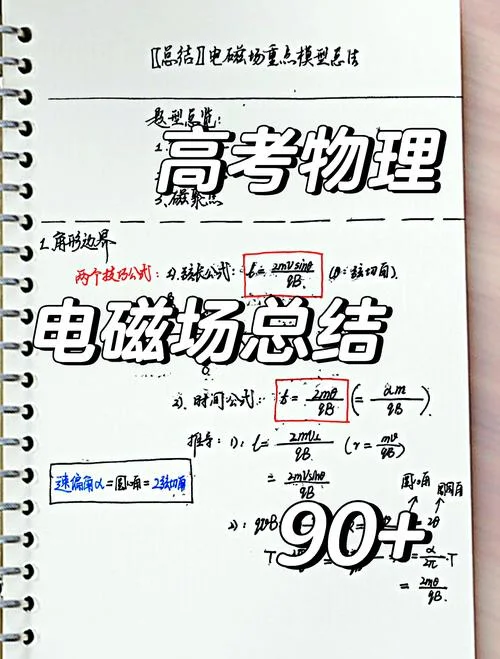 【总结】电磁场重点模型总结
题型总览:
1.
高考物理
3.磁聚焦
1.角形边界
两个技巧公式: 1).弦长公式: l= 2mvsinθ/qB. (θ:弦切角).
电磁场总结
2). 时间公式: t= 2mθ/qB (= αm/qB)
推导: 1): l= 2mv⊥/qB (r= mv/qB)
= 2mvsinθ/qB
速偏角α=圆心角=2弦切角
圆心角
2):
2θ
90+
T
α/2π·T
= 2mθ/qB.